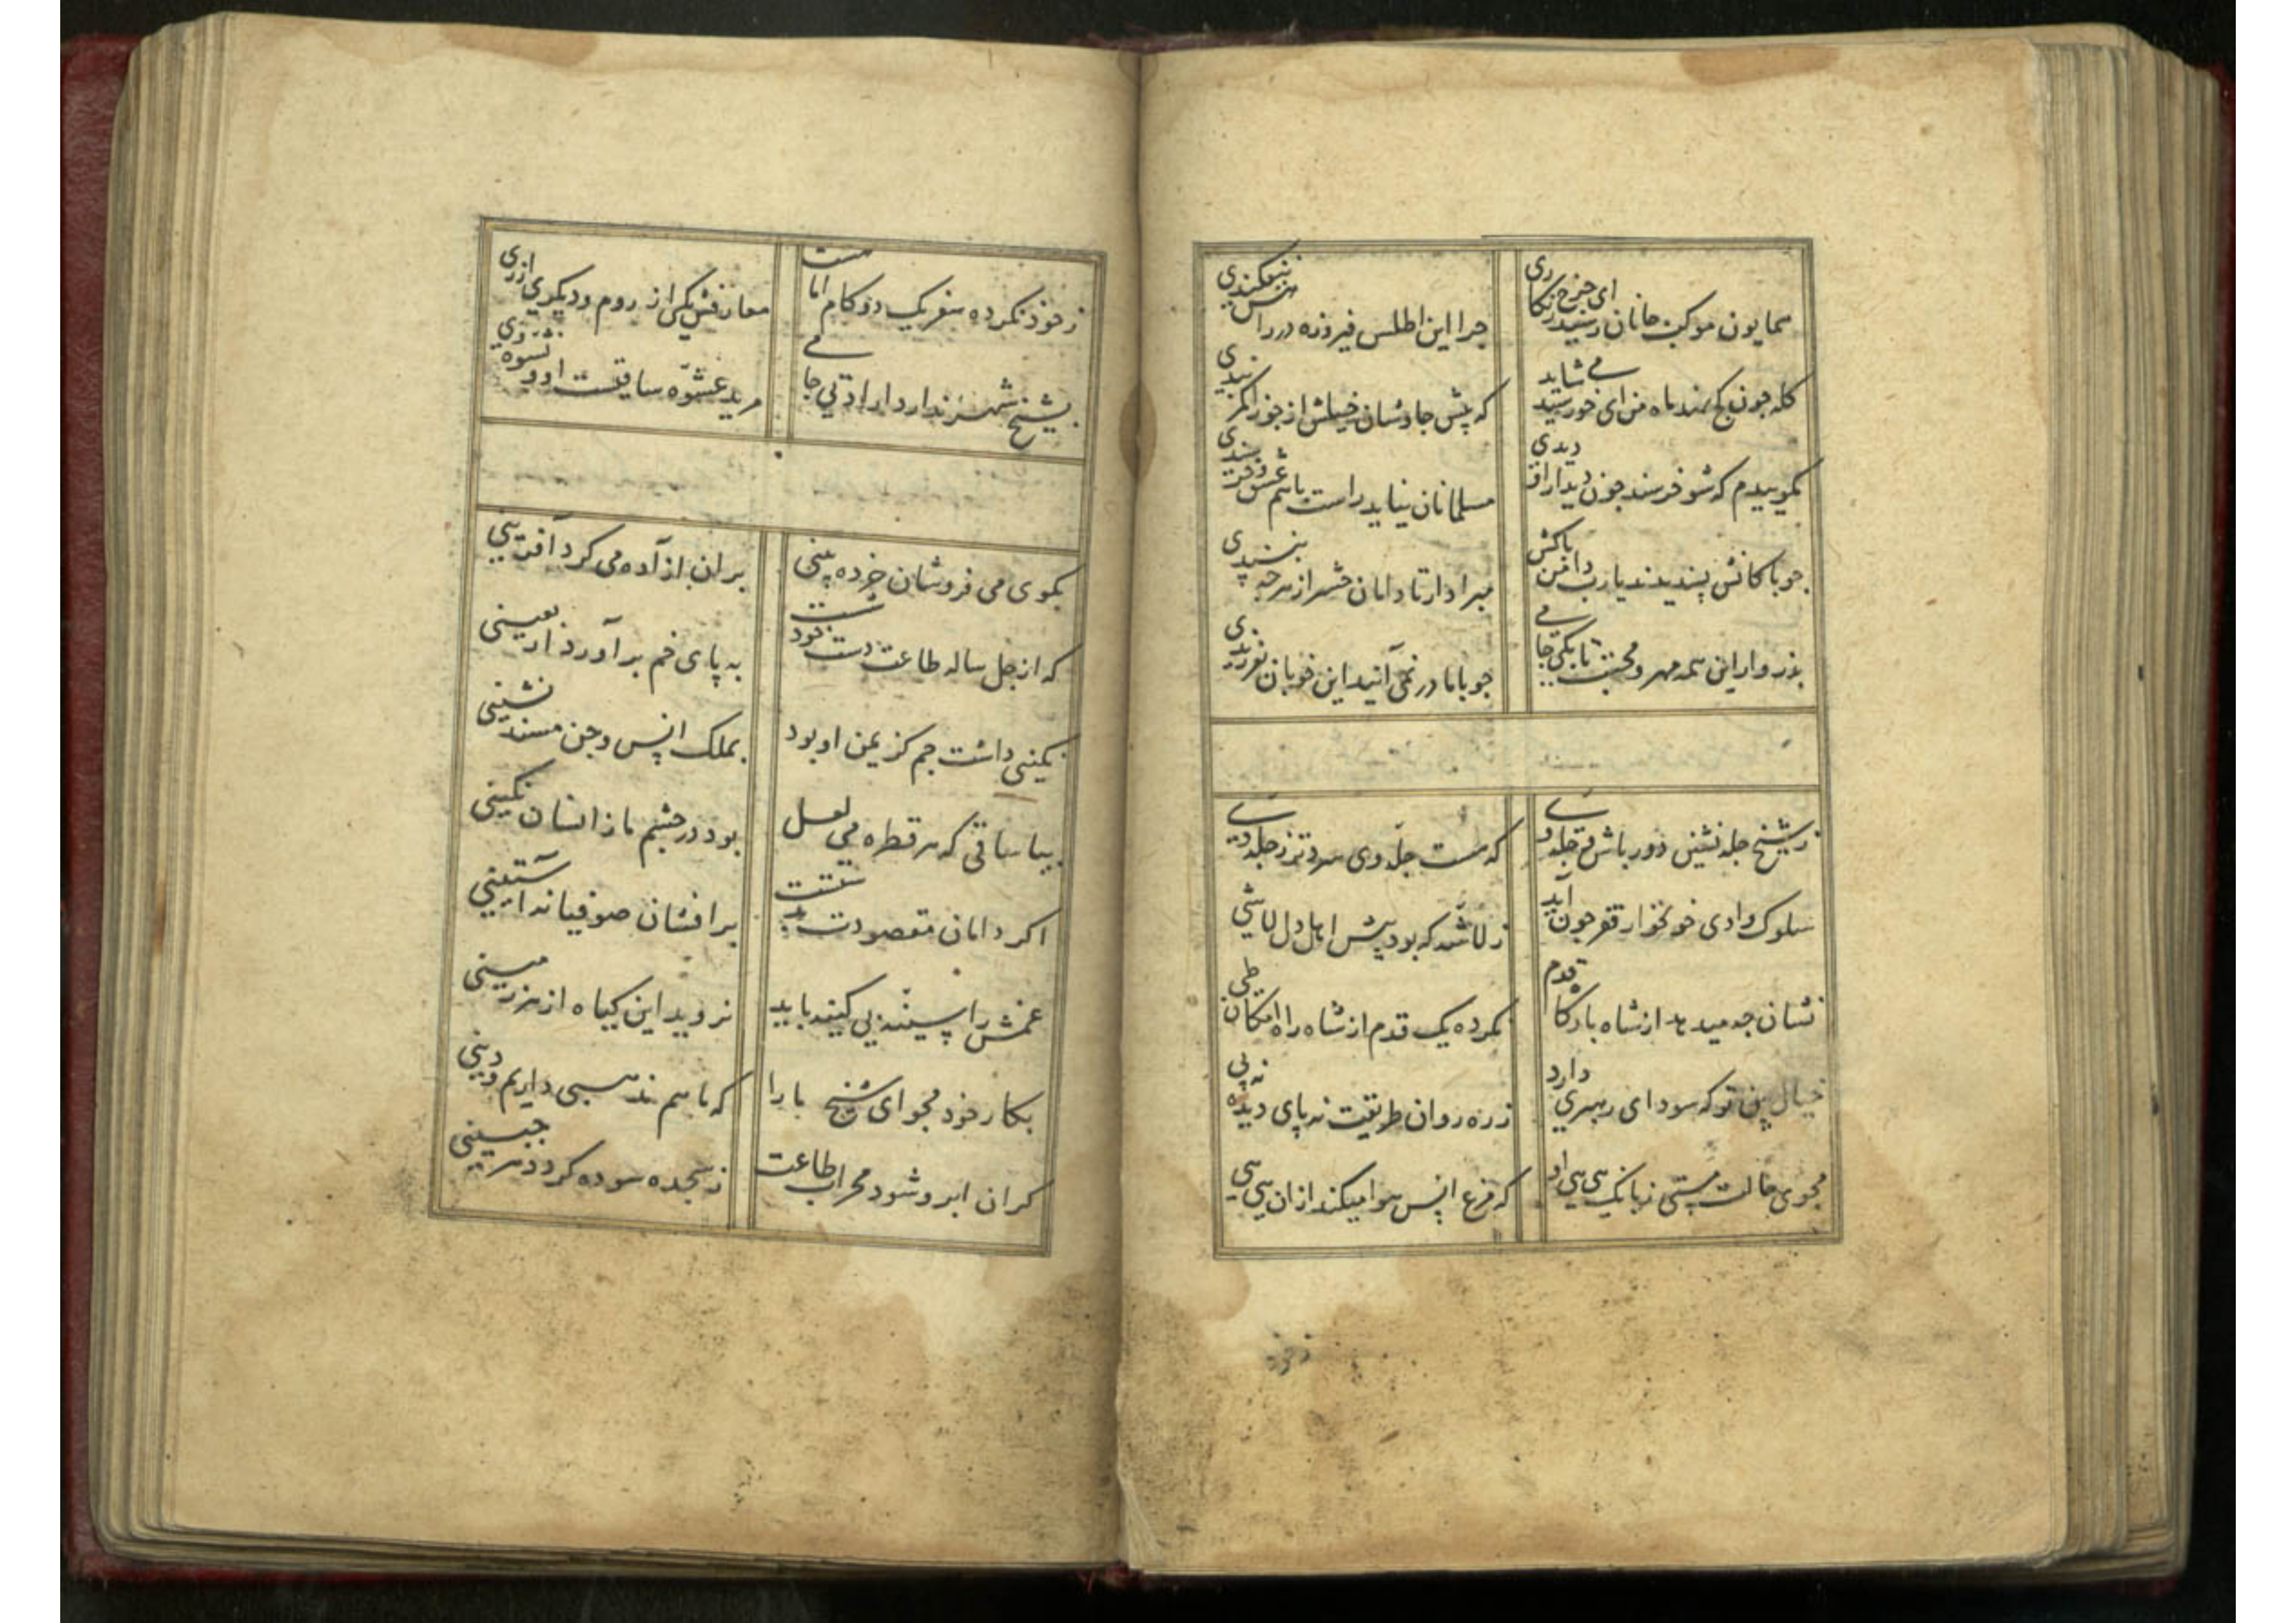 همایون موکب جانان رسید ای چرخ زنکاری
چرا این اطلس فیروزه در راهش نیفکندی
کله چون کج نهد ماه من ای خورشید می شاید
که پیش جاوشان خیلش از جوزا کمر بندی
بکوییدم که شو خرسند چون دیدار او دیدی
مسلمانان نیاید راست با هم عشق و خرسندی
جو پاکانش پسندیدند یارب دامن پاکش
مبرا دار تا دامان حشر از هر چه نپسندی
بدر وار این همه مهر و محبت تا بکی جامی
جو با ما در نمی آیند این خوبان بفرزندی
ز شیخ جله نشین دور باش و جله وی
که هست جله وی سردتر ز جله دی
سلوک وادی خونخوار فقر جون آید
ز لاشه که بود پیش اهل دل لاشی
نشان جه میدهد از شاه بارکاه قدم
نکرده یک قدم از شاه راه امکان طی
خیال بین تو که سودای رهبری دارد
ز ره روان طریقت نه پای دیده نه پی
مجوی حالت مستی ز بانک هی هی او
که مرغ انس هوا میکند از ان هی هی
ز خود نکرده سفر یک دو کام اما هست
معارفش یکی از روم و دیکری از ری
بشیخ شهر ندارد ارادتی جامی
مرید عشوه ساقیست او و نشوه می
بکوی می فروشان خرده بینی
بران از آده می کرد آفرینی
که از جل ساله طاعت دست خود شست
به پای خم برآورد اربعینی
نکینی داشت جم کز یمن او بود
بملک انس و جن مسند نشینی
بیا ساقی که هر قطره می لعل
بود در چشم ما زانسان نکینی
اکر دامان مقصودت بدستست
برافشان صوفیانه آستینی
غمش را سینه بی کینه باید
نروید این کیاه از هر زمینی
بکار خود مجو ای شیخ ما را
که ما هم مذهبی داریم و دینی
کران ابرو شود محراب طاعت
ز سجده سوده کردد هر جبینی